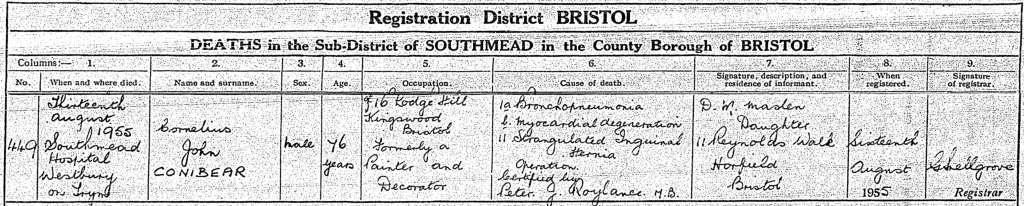 Registration District BRISTOL
DEATHS in the Sub-District of SOUTHMEAD in the County Borough of BRISTOL
Columns:— 1. 2. 3. 4. 5. 6. 7. 8. 9.
No. When and where died. Name and surname. Sex. Age. Occupation. Cause of death. Signature, description, and residence of informant. When registered. Signature of registrar.
449
Thirteenth
August
1955
Southmead
Hospital
Westbury
on Trym
Cornelius
John
CONIBEAR
Male
76
years
of 16 Lodge Hill
Kingswood
Bristol
Formerly a
Painter and
Decorator
1a Bronchopneumonia
b. myocardial degeneration
11 Strangulated Inguinal
Hernia
Operation
Certified by
Peter J. Roylance M.B.
D. M. Maslen
Daughter
11 Reynolds Walk
Horfield
Bristol
Sixteenth
August
1955
Registrar